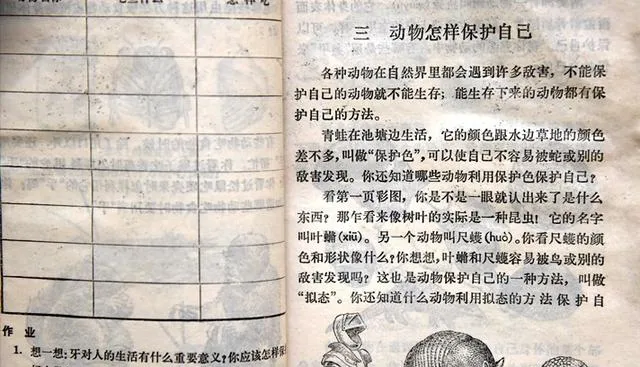 作 业
1. 想一想：牙对人的生活有什么重要意义？你应该怎样保
三 动物怎样保护自己
各种动物在自然界里都会遇到许多敌害，不能保
护自己的动物就不能生存；能生存下来的动物都有保
护自己的方法。
青蛙在池塘边生活，它的颜色跟水边草地的颜色
差不多，叫做“保护色”，可以使自己不容易被蛇或别的
敌害发现。你还知道哪些动物利用保护色保护自己？
看第一页彩图，你是不是一眼就认出来了是什么
东西？那乍看来像树叶的实际是一种昆虫！它的名字
叫叶䗛(xiū)。另一个动物叫尺蠖(huò)。你看尺蠖的颜
色和形状像什么？你想想，叶䗛和尺蠖容易被鸟或别的
敌害发现吗？这也是动物保护自己的一种方法，叫做
“拟态”。你还知道什么动物利用拟态的方法保护自